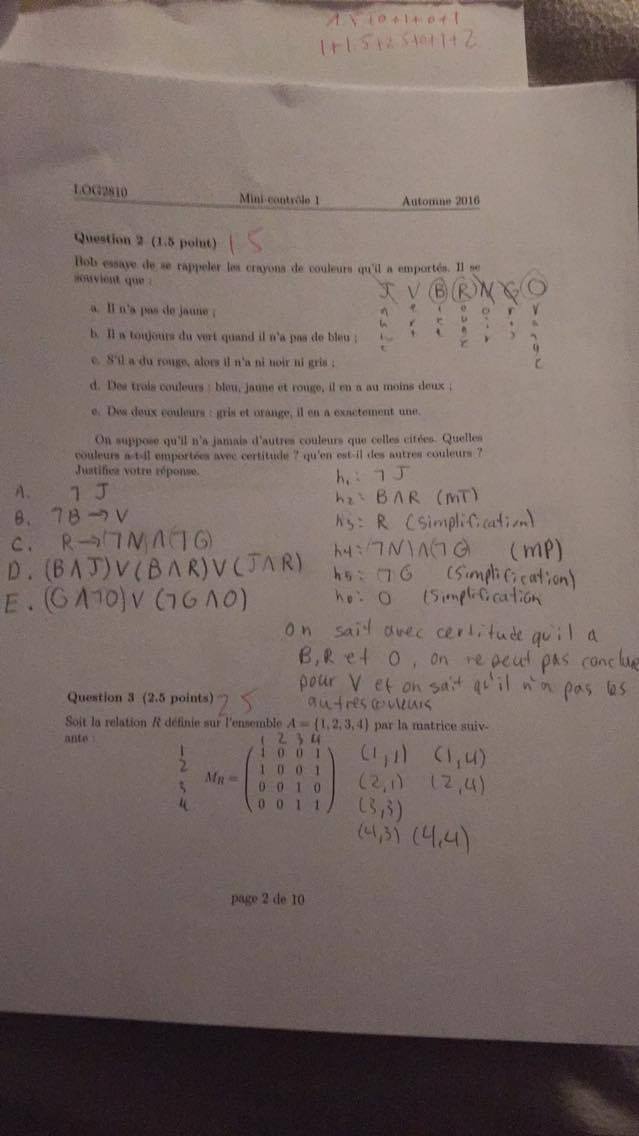 1.5+0+1+0+1
1+1.5+2.5+0+1+2
LOG2810 Mini-contrôle 1 Automne 2016
Question 2 (1.5 point) 1.5
Bob essaye de se rappeler les crayons de couleurs qu'il a emportés. Il se
souvient que :
J V B R N G O
a. Il n'a pas de jaune ;
b. Il a toujours du vert quand il n'a pas de bleu ;
c. S'il a du rouge, alors il n'a ni noir ni gris ;
d. Des trois couleurs : bleu, jaune et rouge, il en a au moins deux ;
e. Des deux couleurs : gris et orange, il en a exactement une.
On suppose qu'il n'a jamais d'autres couleurs que celles citées. Quelles
couleurs a-t-il emportées avec certitude ? qu'en est-il des autres couleurs ?
Justifiez votre réponse.
A. ¬J
B. ¬B → V
C. R → (¬N) ∧ (¬G)
D. (B ∧ J) ∨ (B ∧ R) ∨ (J ∧ R)
E. (G ∧ ¬O) ∨ (¬G ∧ O)
h1: ¬J
h2: B ∧ R (MT)
h3: R (simplification)
h4: (¬N) ∧ (¬G) (MP)
h5: ¬G (simplification)
h6: O (simplification
On sait avec certitude qu'il a
B, R et O, on ne peut pas conclure
pour V et on sait qu'il n'a pas les
autres couleurs
Question 3 (2.5 points) 2.5
Soit la relation R définie sur l'ensemble A = {1, 2, 3, 4} par la matrice suiv-
ante :
1 2 3 4
1 1 0 0 1 (1,1) (1,4)
2 1 0 0 1 (2,1) (2,4)
M_R =
3 0 0 1 0 (3,3)
4 0 0 1 1 (4,3) (4,4)
page 2 de 10